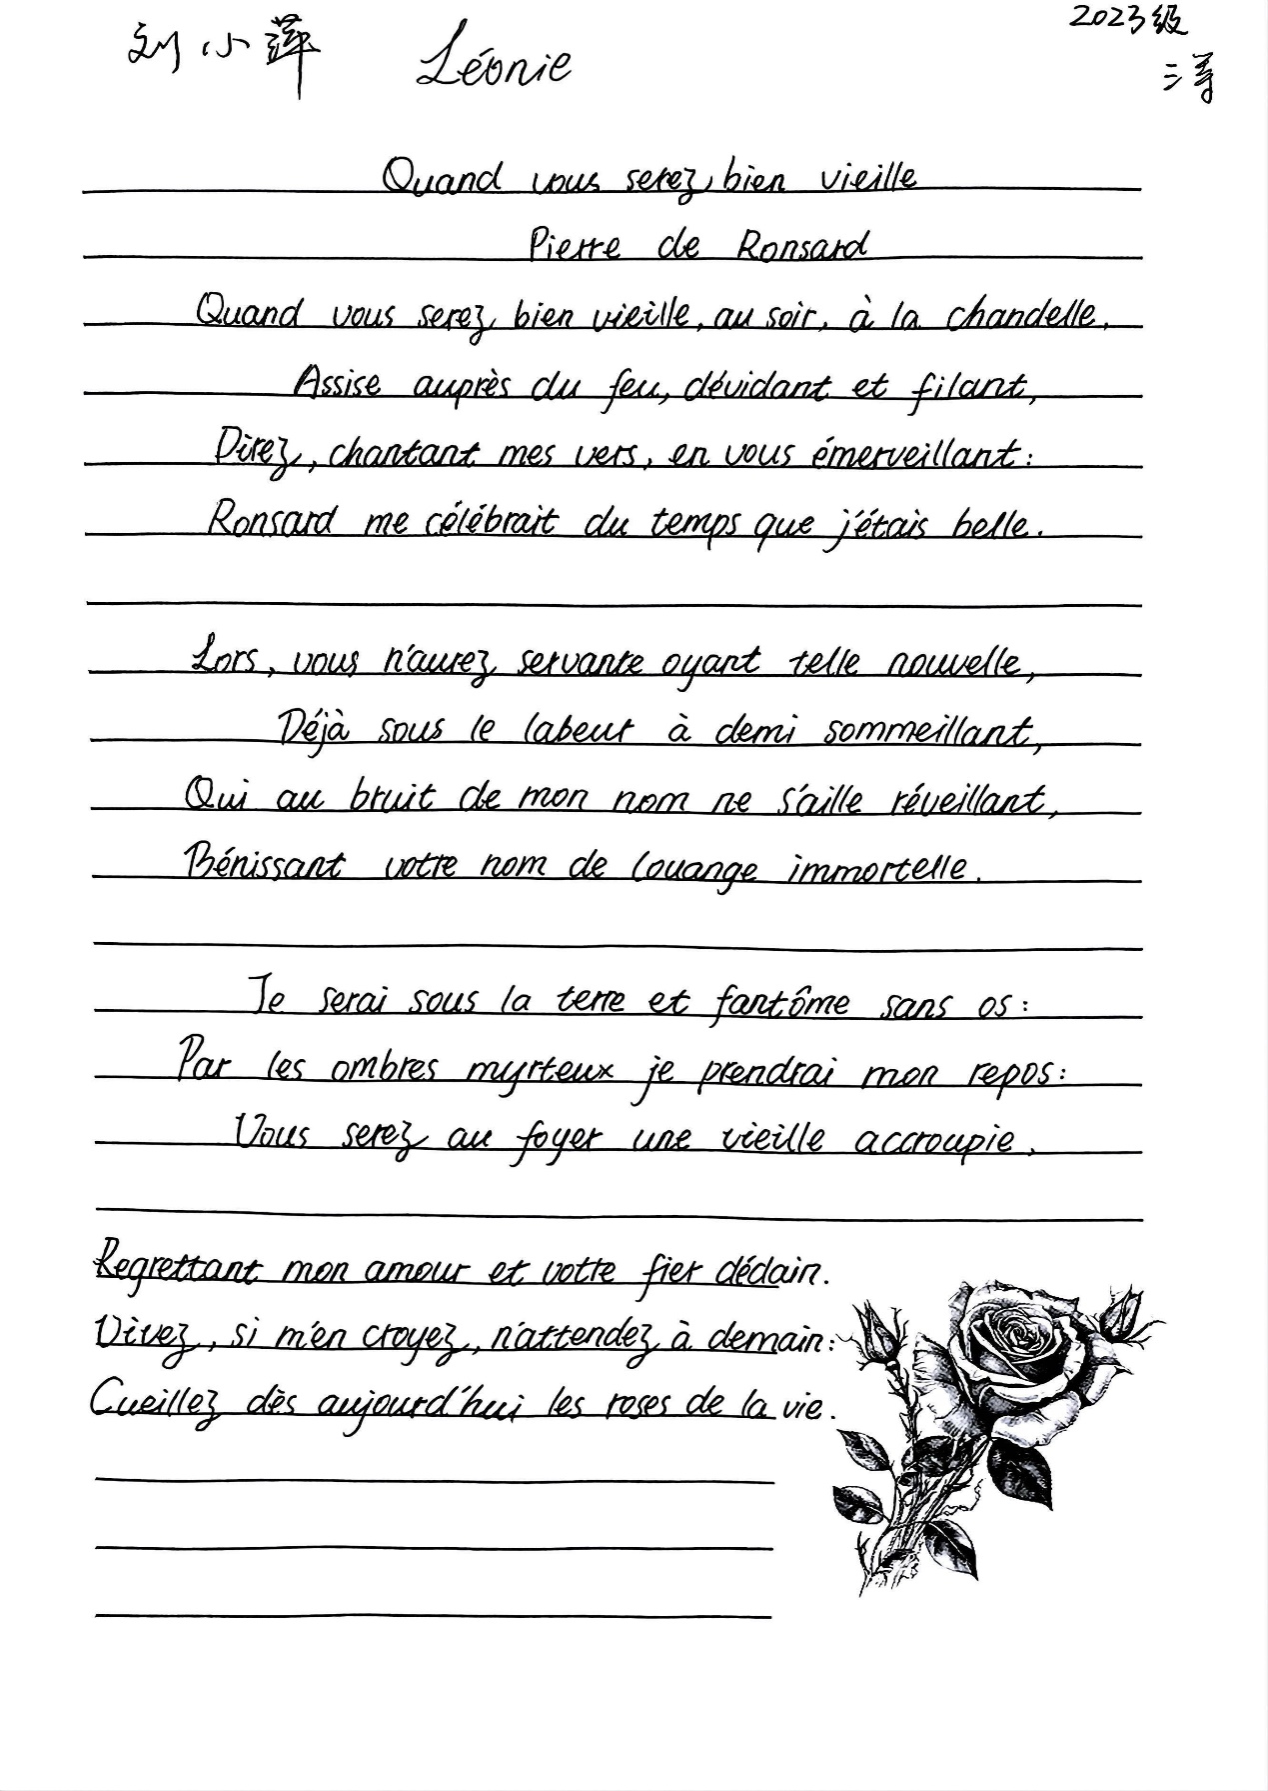 刘小萍 Léonie
2023级
Quand vous serez bien vieille
Pierre de Ronsard
Quand vous serez bien vieille, au soir, à la chandelle,
Assise auprès du feu, dévidant et filant,
Direz, chantant mes vers, en vous émerveillant:
Ronsard me célébrait du temps que j'étais belle.
Lors, vous n'aurez servante oyant telle nouvelle,
Déjà sous le labeur à demi sommeillant,
Qui au bruit de mon nom ne s'aille réveillant,
Bénissant votre nom de louange immortelle.
Je serai sous la terre et fantôme sans os:
Par les ombres myrteux je prendrai mon repos:
Vous serez au foyer une vieille accroupie,
Regrettant mon amour et votre fier dédain.
Vivez, si m'en croyez, n'attendez à demain:
Cueillez dès aujourd'hui les roses de la vie.